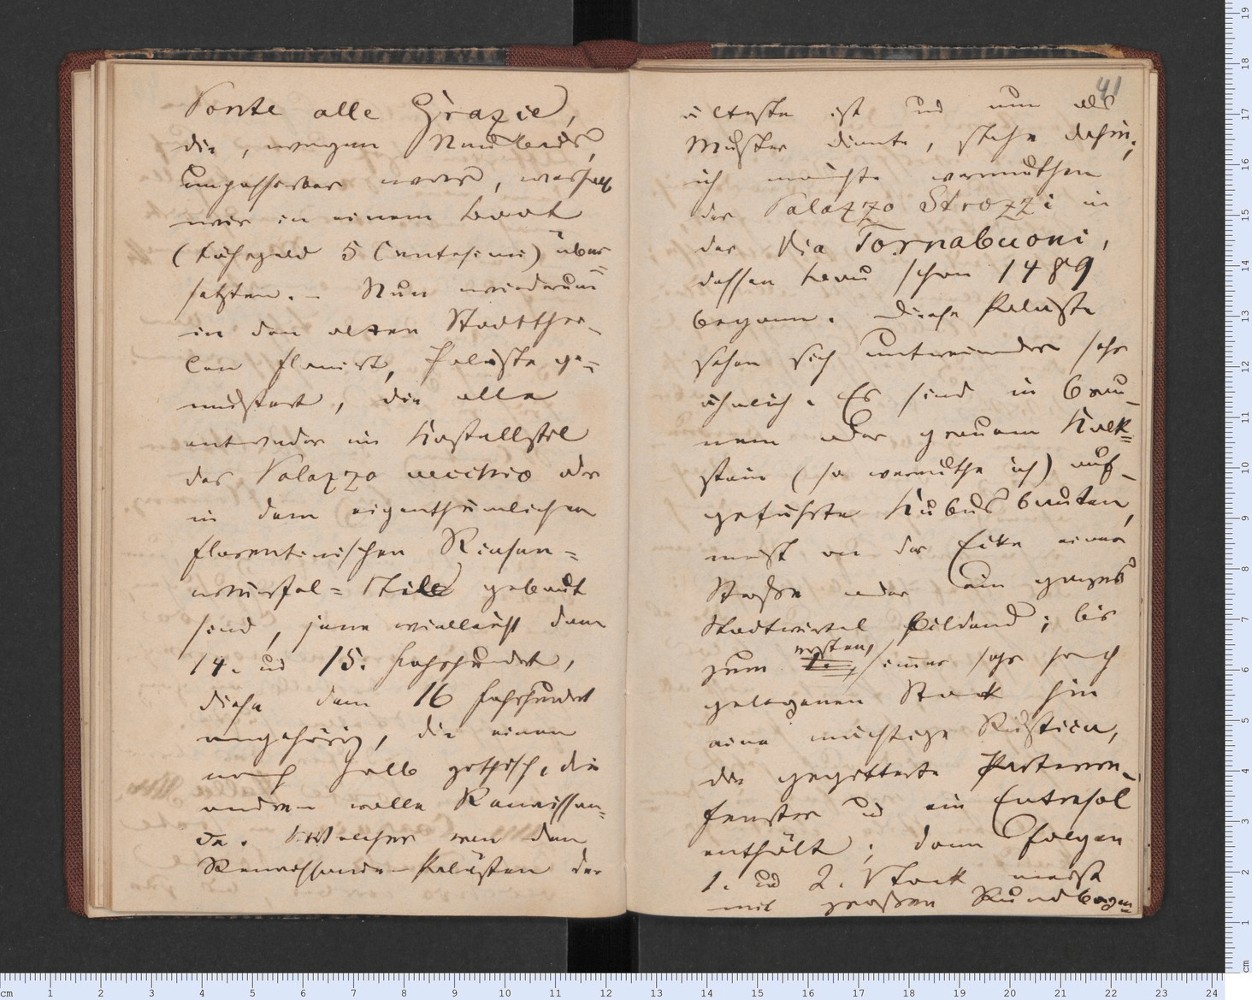 Ponte alle Grazie,
die, wegen Neubaus,
unpassirbar war, weshalb
wir in einem Boot
(Fährgeld 5 Centesimi) über
setzten. – Nun wiederum
in den alten Stadtthei-
len flanirt, Paläste ge-
mustert, die alle
entweder im Kastellstil
des Palazzo vecchio oder
in dem eigenthümlichen
florentinischen Riesen-
würfel-Stile gebaut
sind, jene vielleicht dem
14. und 15. Jahrhundert,
diese dem 16 Jahrhundert
angehörig, die einen
noch halb gothisch, die
andren volle Renaissan-
ce. Welcher von den
Renaissance-Palästen der
41
älteste ist und nun als
Muster diente, stehe dahin;
ich möchte vermuthen
der Palazzo Strozzi in
der Via Tornabuoni,
dessen Bau schon 1489
begann. Diese Paläste
sehen sich untereinander sehr
ähnlich. Es sind in brau-
nem oder grauem Kalk-
stein (so vermuthe ich) auf-
geführte Kubusbauten,
meist an der Ecke einer
Straße oder ein ganzes
Stadtviertel bildend; bis
zum ersten, immer sehr hoch
gelegenen Stock hin
eine mächtige Rustica,
die gegitterte Parterre-
fenster und ein Entresol
enthält; dann folgen
1. und 2. Stock meist
mit großen Rundbogen